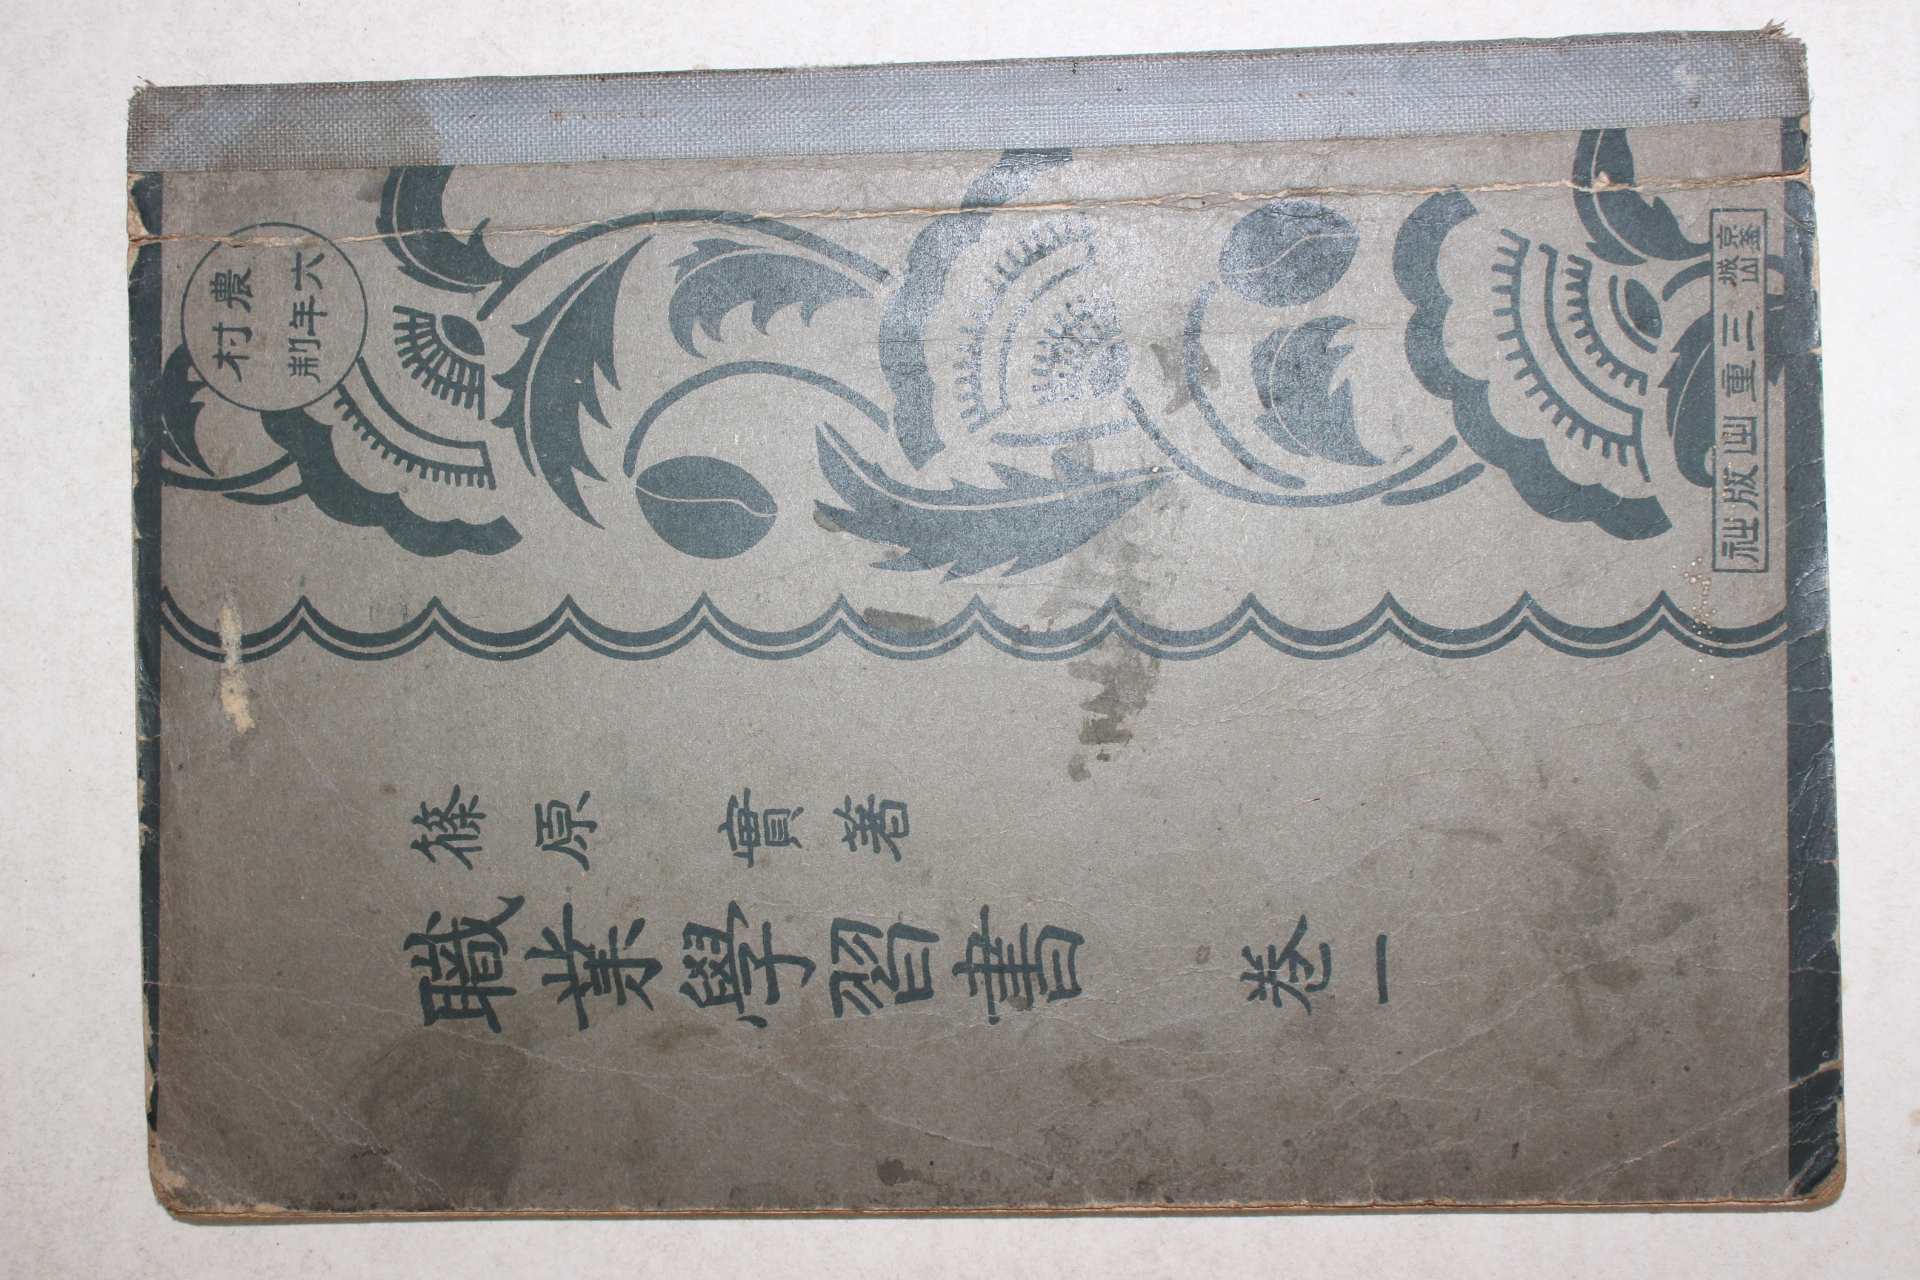 農村
六年制
篠原 實著
職業學習書 卷一
京城
釜山
三重出版社